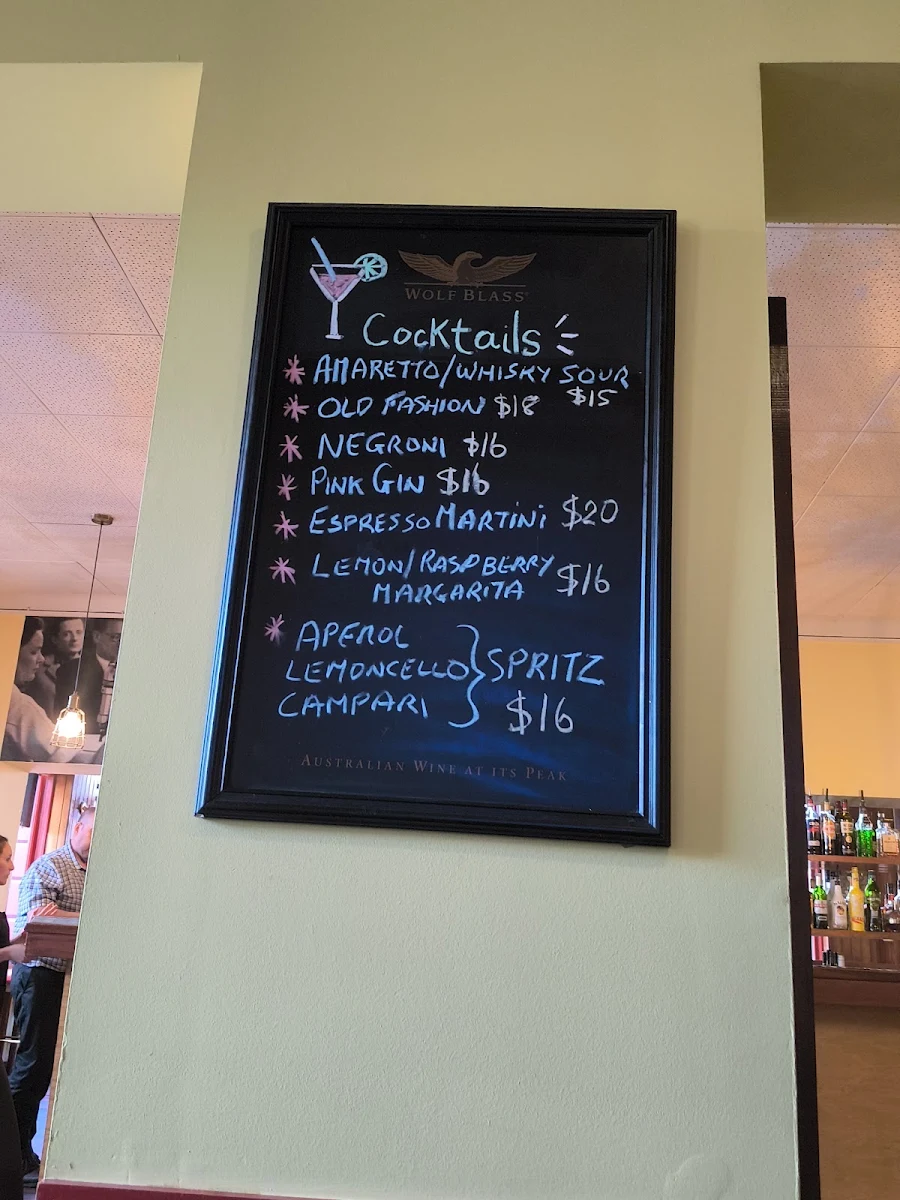 WOLF BLASS
Cocktails
* AMARETTO/WHISKY SOUR
$15
* OLD FASHION $18
* NEGRONI $16
* PINK GIN $16
* ESPRESSO MARTINI $20
* LEMON/RASPBERRY
MARGARITA $16
* APEROL
LEMONCELLO } SPRITZ
CAMPARI $16
AUSTRALIAN WINE AT ITS PEAK